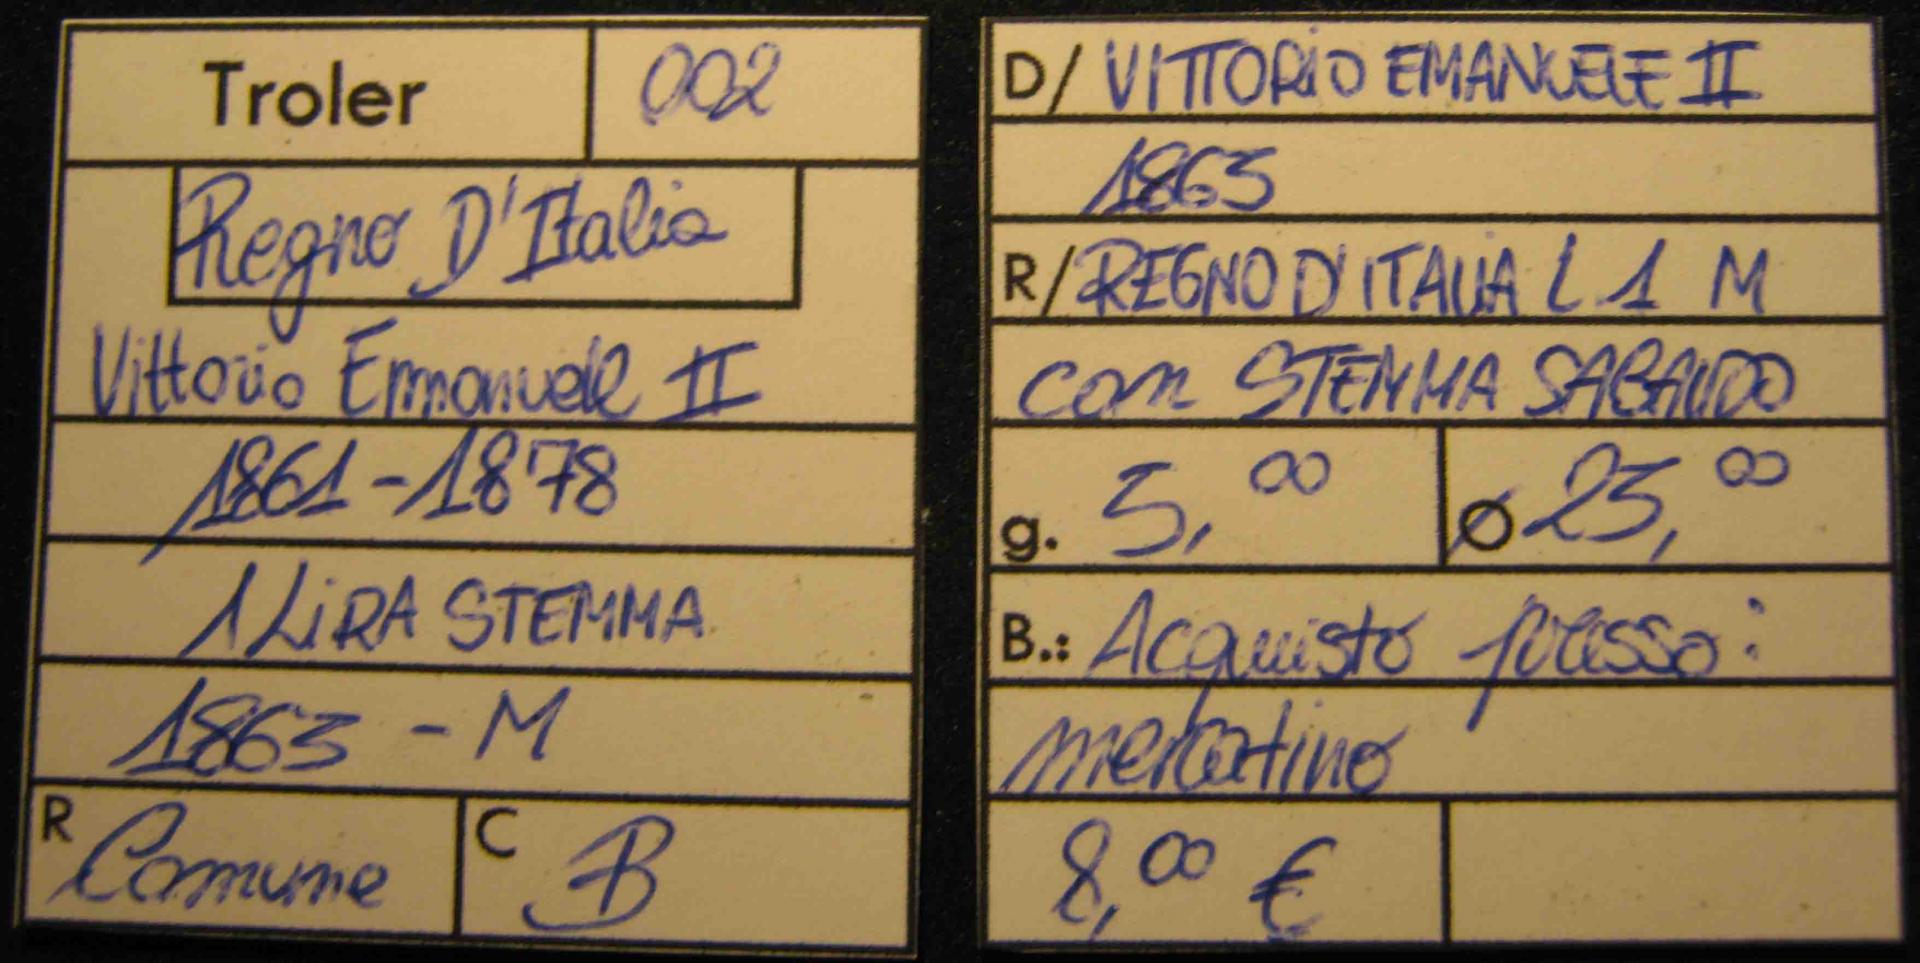 Troler 002
Regno D'Italia
Vittorio Emanuele II
1861-1878
1 LiRA STEMMA
1863 - M
R Comune C B
D/ VITTORiO EMANUELE II
1863
R/ REGNO D'ITALIA L 1 M
con STEMMA SABAUDO
g. 5,00 Ø 23,00
B.: Acquisto presso:
mercatino
8,00 €